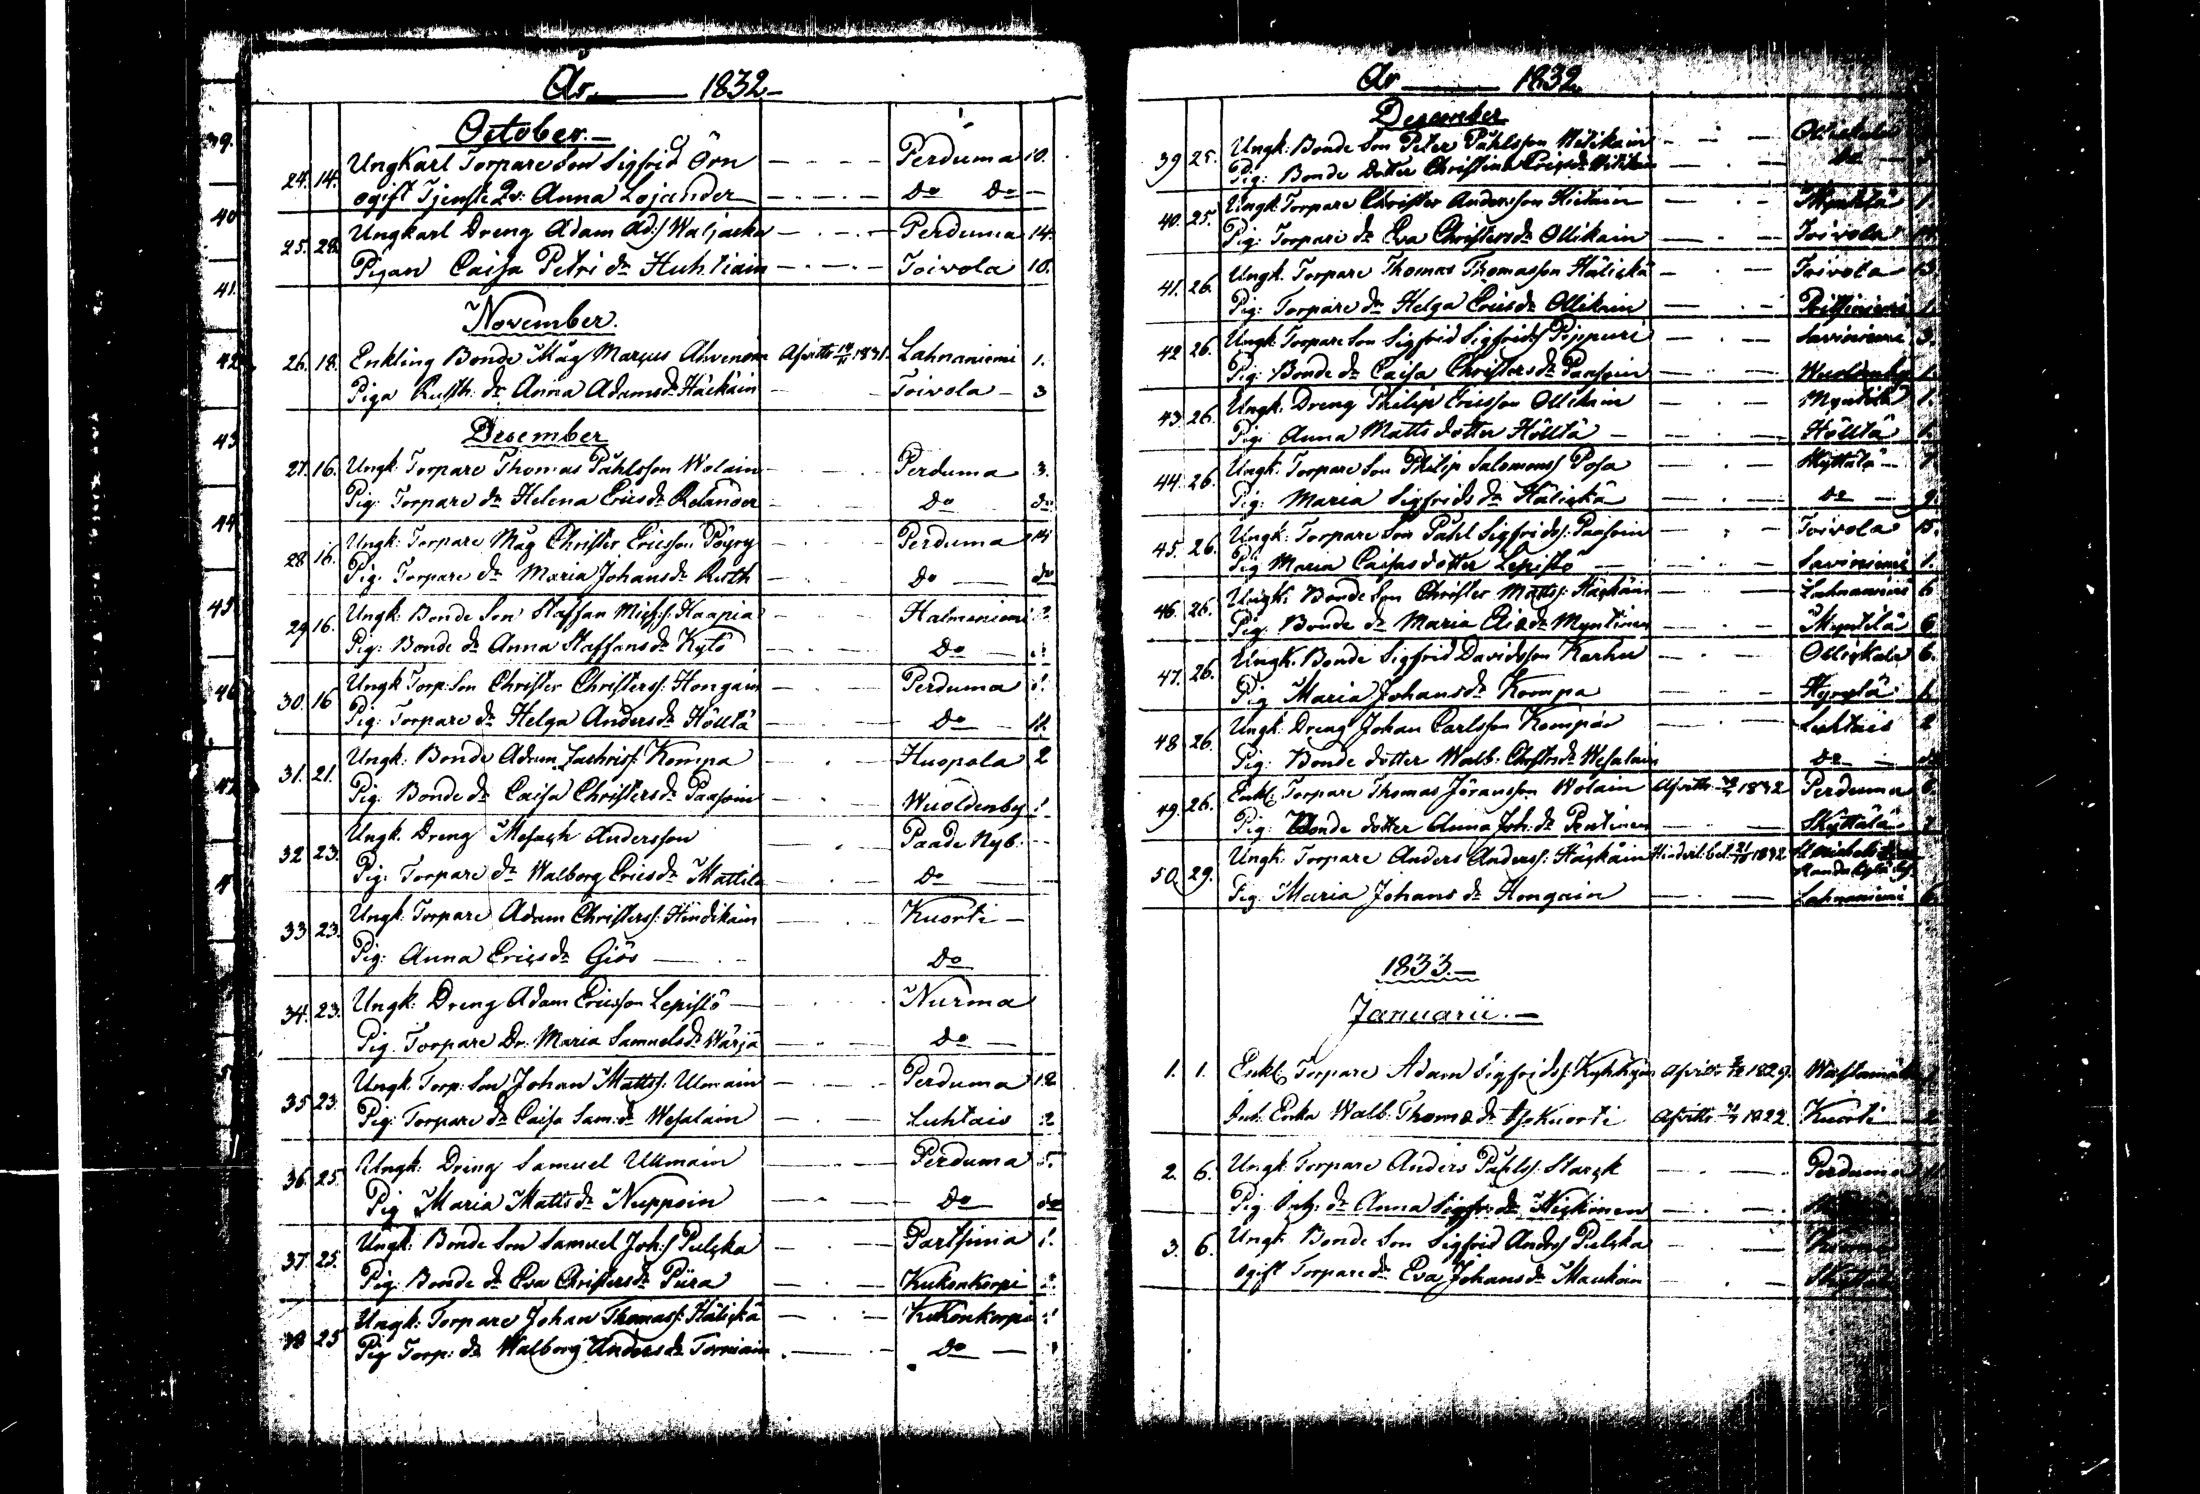 År 1832
October.
24. 14. Ungkarl Torpare Son Sigfrid Örn Perduma 10.
ogift Tjenste Qv: Anna Lojander Do Do
25. 28. Ungkarl Dreng Adam Ad:s Waljacka Perduma 14.
Pigan Caisa Petri dr Huhtiain Toivola 10.
November.
26. 18. Enkling Bonde Måg Marcus Ahvenain Afvitts 1831. Lahnaniemi 1.
Piga Rusth: dr Anna Adamsdr Häckäin Toivola 3
December
27. 16. Ungk: Torpare Thomas Påhlsson Wolain Perduma 3.
Pig: Torpare dr Helena Ericsdr Relander Do do
28 16. Ungk: Torpare Måg Christer Ericsson Pöyry Perduma 14
Pig: Torpare dr Maria Johansdr Ruth Do do
29 16. Ungk: Bonde Son Staffan Mich:s: Haapia Halmeniemi 2
Pig: Bonde dr Anna Staffansdr Kytö Do
30. 16 Ungk Torp: Son Christer Christerss: Hongain Perduma
Pig: Torpare dr Helga Andersdr Hölttä Do 11.
31. 21. Ungk: Bonde Adam Kompa Huopola 2
Pig: Bonde dr Caisa Christersdr Paasoin Wuoldenby 1
32 23. Ungk: Dreng Mesach Andersson Paade Nyb:
Pig: Torpare dr Walborg Ericsdr Mattila Do
33 23. Ungk: Torpare Adam Christerss: Hindikain Kuorti
Pig: Anna Ericsdr Giös Do
34. 23. Ungk: Dreng Adam Ericsson Lepistö Nurma
Pig: Torpare Dr: Maria Samuelsdr Wärjä Do
35 23. Ungk: Torp: Son Johan Mattss: Ulmain Perduma 12
Pig: Torpare dr Caisa Sam:dr Wesalain Luhtais 2
36. 25. Ungk: Dreng Samuel Ullmain Perduma 5.
Pig Maria Mattsdr Nuppoin Do do
37. 25. Ungk: Bonde Son Samuel Joh:s Pulcka Partsima 1.
Pig: Bonde dr Eva Christersdr Piira Kukonkorpi
38 25 Ungk: Torpare Johan Thomass: Hälickä Kukonkorpi
Pig Torp: dr Walborg Andersdr Torniain Do
År 1832
December
39 25. Ungk: Bonde Son Peter Påhlsson
Pig: Bonde Dotter Christina Ericsdr Do
40. 25. Ungk: Torpare Christer Andersson Hietain Myntilä 1
Pig: Torpare dr Eva Christersdr Ollikain Toivola
41. 26. Ungk. Torpare Thomas Thomasson Hälickä Toivola 13.
Pig: Torpare dr Helga Ericsdr Ollikain 1.
42 26. Ungk: Torpare Son Sigfrid Sigfrids: Pippuri Saviniemi 3.
Pig: Bonde dr Caisa Christersdr Paasoin Wuoldenby 1.
43. 26. Ungk: Dreng Philip Ericsson Ollikain Myntilä 1.
Pig: Anna Matts dotter Hölttä Hölttä 1.
44. 26. Ungk: Torpare Son Philip Salomons: Posa Skyttälä
Pig: Maria Sigfridsdr Hälickä Do 9.
45. 26. Ungk: Torpare Son Påhl Sigfridss: Paasoin Toivola 15.
Pig Maria Caisas dotter Lepistö Saviniemi 1.
46. 26. Ungk: Bonde Son Christer Mattss: Häckäin Lahnaniemi 6
Pig: Bonde dr Maria Eliædr Myntinen Myntilä 6.
47. 26. Ungk: Bonde Sigfrid Davidsson Karhu Ollickala 6.
Pig Maria Johansdr Kompa Hyrylä 1.
48 26. Ungk: Dreng Johan Carlsson Kompain Luhtais 2
Pig: Bonde dotter Walb: Christrsdr Wesalain Do do
49. 26. Enkl: Torpare Thomas Göransson Wolain Afvitts 1832 Perduma 6.
Pig: Bonde dotter Anna Joh:dr Pentinen Skyttälä
50. 29. Ungk: Torpare Anders Anders: Häckäin Hinderl: bet: 1832 St Michels
Pig: Maria Johansdr Hongain Lahnaniemi 6.
1833.
Januarii.
1. 1. Enkl: Torpare Adam Sigfridss: Kyhkyin Afvitts 1829.
Inh: Enka Walb: Thomædr Kuorti Afvitts 1822. Kuorti 2
2. 6. Ungk: Torpare Anders Påhls: Starck Perduma 11
Pig Inh: dr Anna Sigfr:dr Kickinen
3. 6. Ungk: Bonde Son Sigfrid Anders Pulcka
ogift Torpare dr Eva Johansdr Maukoin